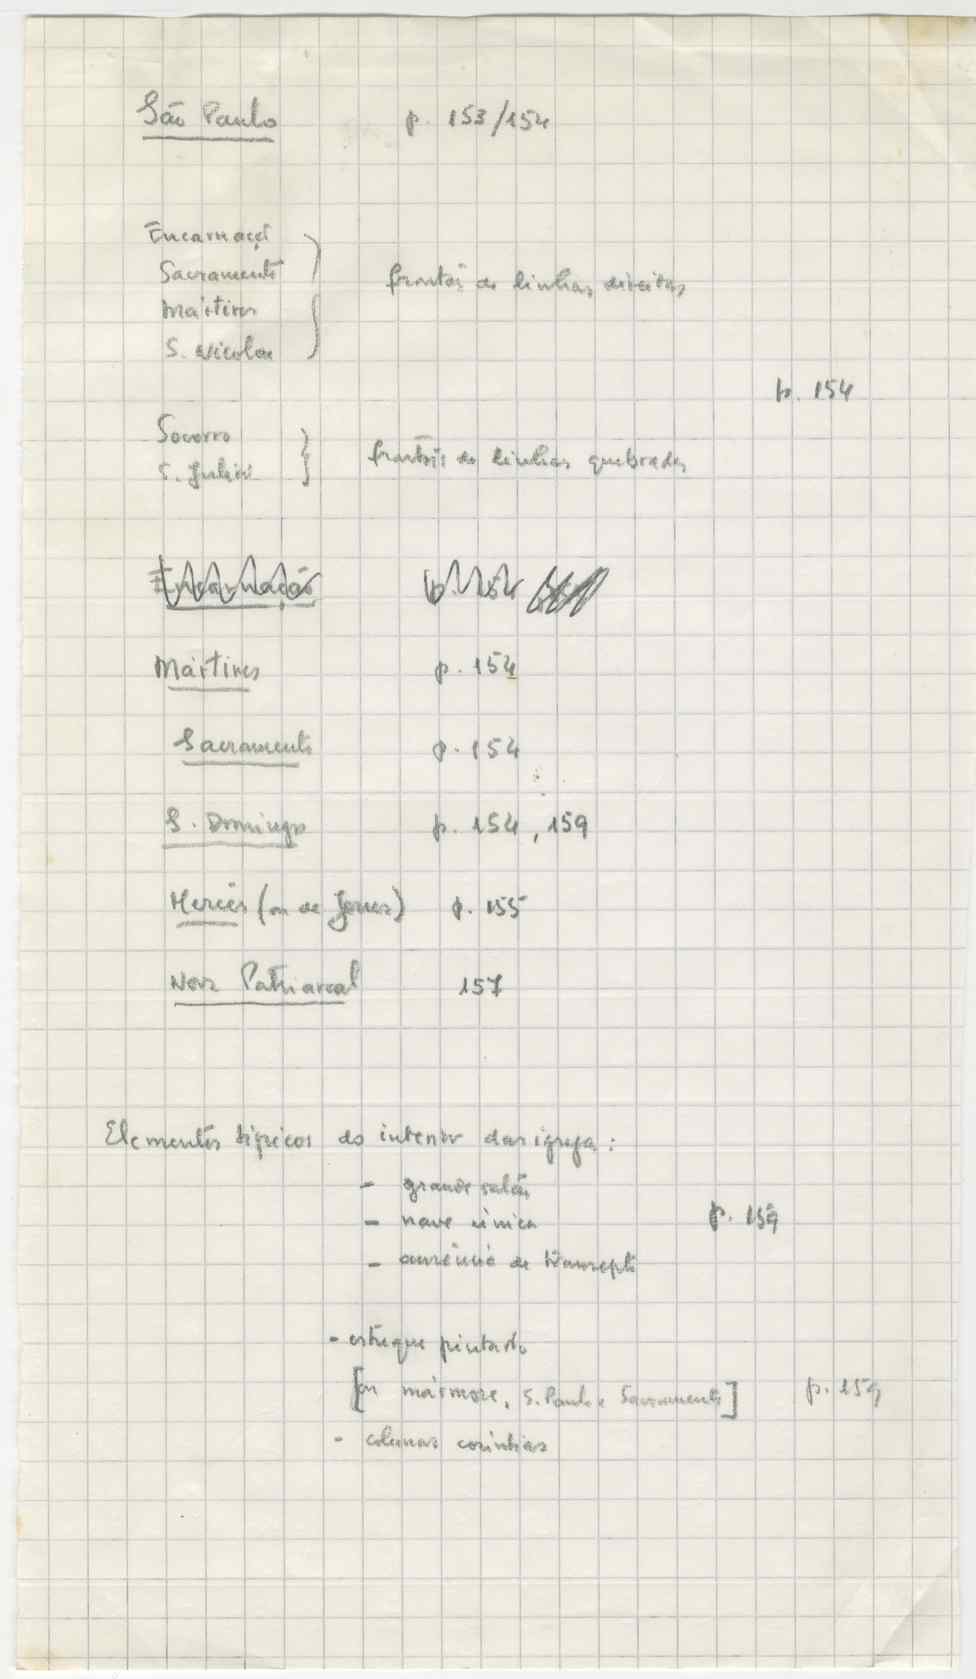 São Paulo p. 153/154
Encarnação
Sacramento
Mártires
S. Nicolau
frontão de linhas direitas
p. 154
Socorro
S. Julião
frontões de linhas quebradas
Encarnação p. 154
Mártires p. 154
Sacramento p. 154
S. Domingos p. 154, 159
Mercês (ou de Jesus) p. 155
Nova Patriarcal 157
Elementos típicos do interior das igrejas:
- grande salão
- nave única p. 159
- ausência de transepto
- estuque pintado
[ou mármore, S. Paulo e Sacramento] p. 159
- colunas coríntias